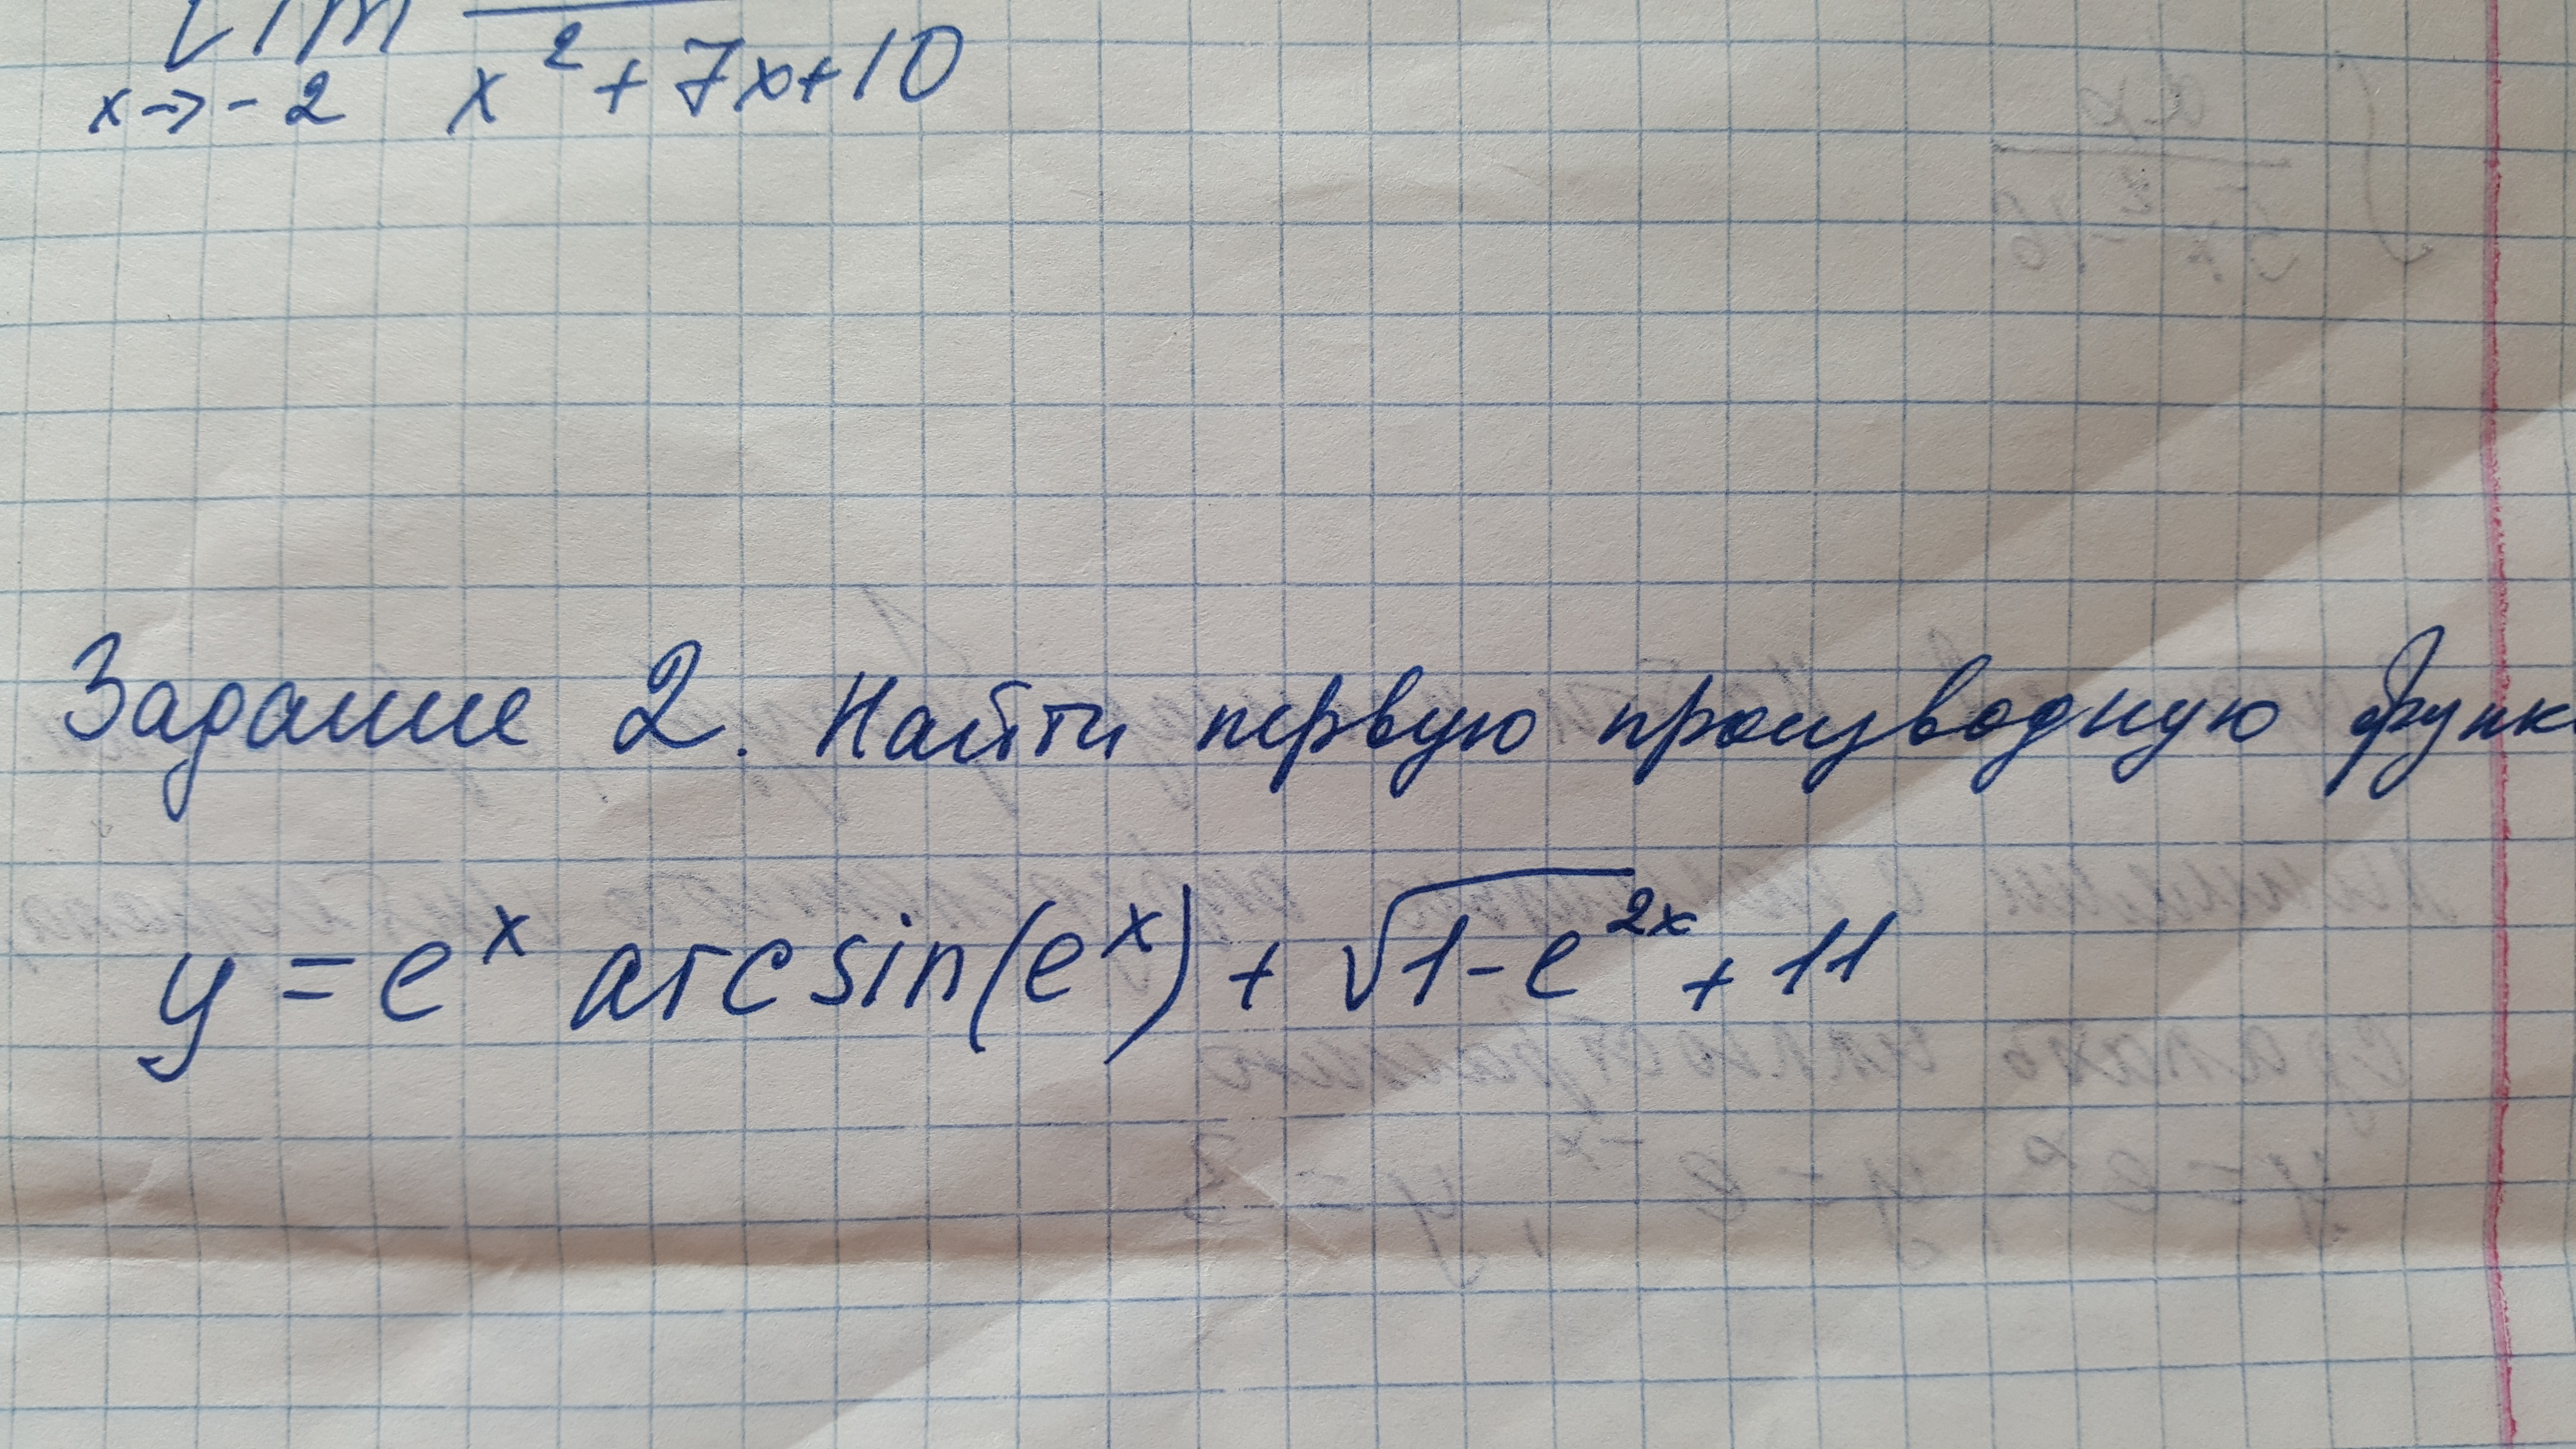 lim
x→-2 x²+7x+10
Задание 2. Найти первую производную функ
y = eˣ arcsin(eˣ) + √1-e²ˣ + 11